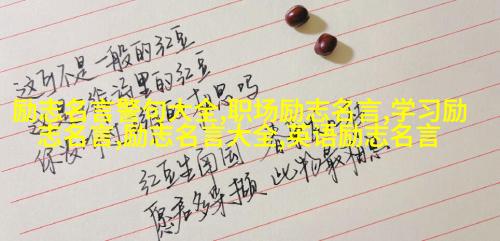 这可不是一般的红豆
里的红豆
励志名言警句大全,职场励志名言,学习励
志名言,励志名言大全,英语励志名言
红豆生南国
愿君多采撷 此物最相思